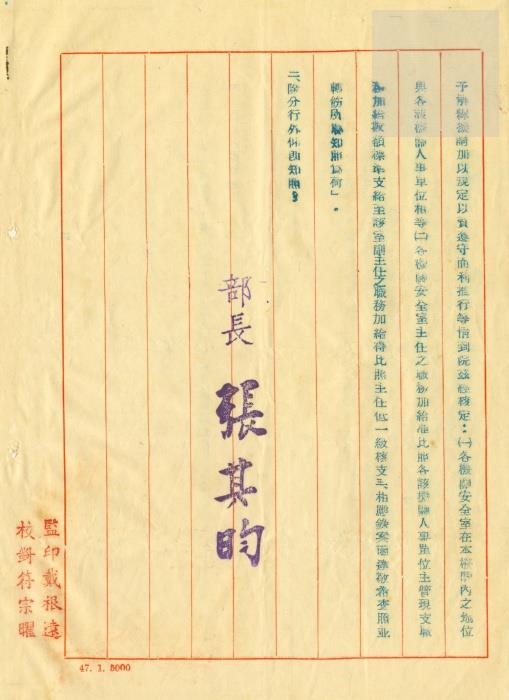 予解釋擬請加以規定以資遵守而利推行等情到院茲經核定：㈠各機關安全室在本機關內之地位
與各該機關人事單位相等㈡各機關安全室主任之職務加給准比照各該機關人事單位主管現支職
務加給數額標準支給至該室副主任之職務加給得比照主任低一級核支三、相應錄案函達敬希查照並
轉飭所屬知照為荷」。
二、除分行外仰即知照。
部長 張其昀
監印戴根遠
校對符宗曜
47. 1. 5000